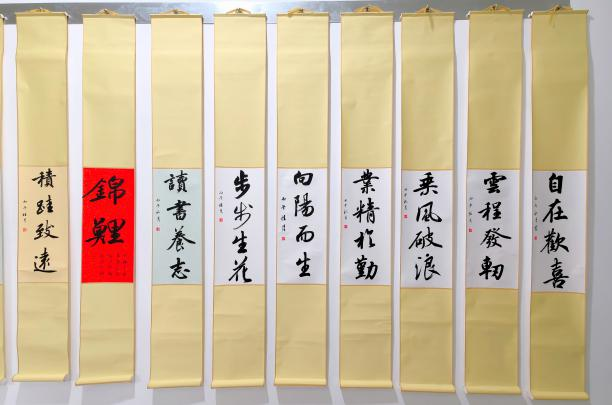 自在歡喜
雲程發軔
乘風破浪
業精於勤
向陽而生
步步生花
讀書養志
錦鯉
積跬致遠